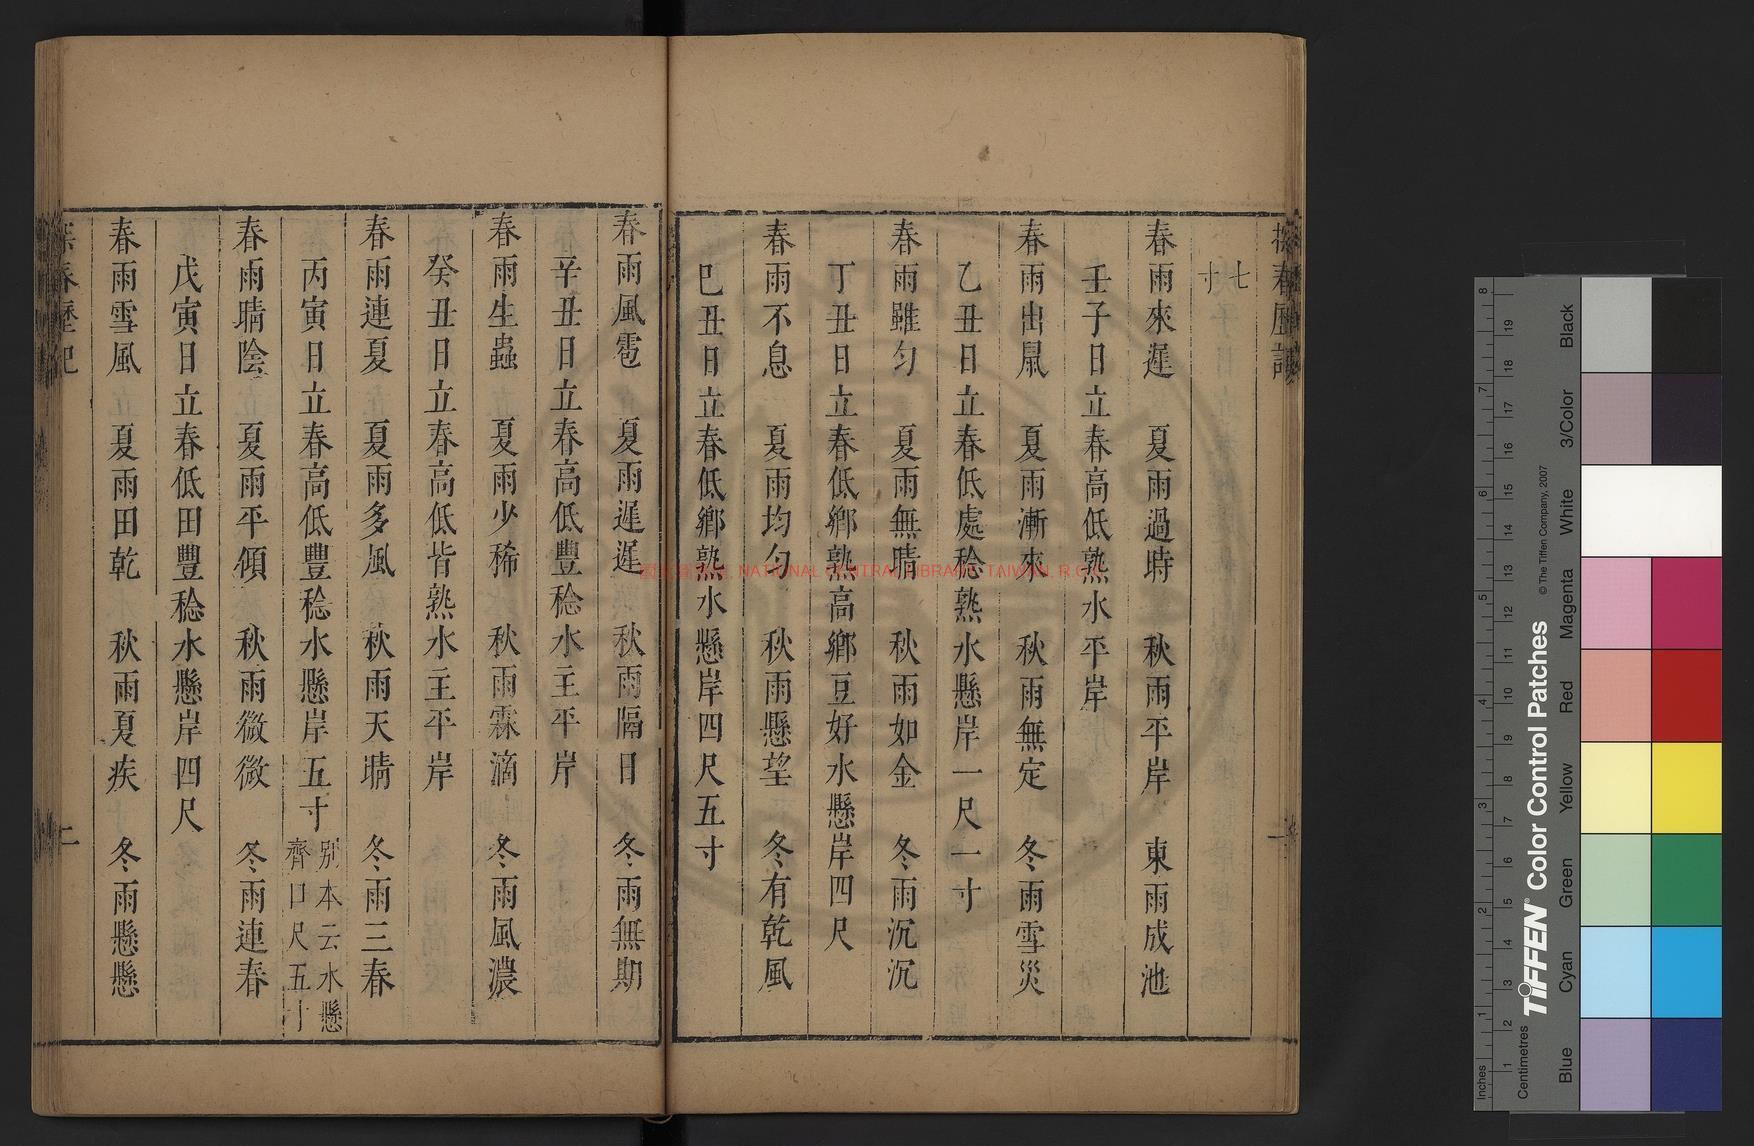 探春歷記
七
寸
春雨來遲　夏雨過時　秋雨平岸　東雨成池
壬子日立春高低熟水平岸
春雨出鼠　夏雨漸來　秋雨無定　冬雨雪災
乙丑日立春低處稔熟水懸岸一尺一寸
春雨雖勻　夏雨無晴　秋雨如金　冬雨沉沉
丁丑日立春低鄉熟高鄉豆好水懸岸四尺
春雨不息　夏雨均勻　秋雨懸望　冬有乾風
巳丑日立春低鄉熟水懸岸四尺五寸
春雨風雹　夏雨遲遲　秋雨隔日　冬雨無期
辛丑日立春高低豐稔水主平岸
春雨生蟲　夏雨少稀　秋雨霖滴　冬雨風濃
癸丑日立春高低皆熟水主平岸
春雨連夏　夏雨多風　秋雨天晴　冬雨三春
丙寅日立春高低豐稔水懸岸五寸
別本云水懸
齊口尺五寸
春雨晴陰　夏雨平傾　秋雨微微　冬雨連春
戊寅日立春低田豐稔水懸岸四尺
春雨雪風　夏雨田乾　秋雨夏疾　冬雨懸懸
探春歷記
二
NATIONAL CENTRAL LIBRARY, TAIWAN, R.O.C.
TIFFEN® Color Control Patches
© The Tiffen Company, 2007
Centimetres
Inches
Blue
Cyan
Green
Yellow
Red
Magenta
White
3/Color
Black